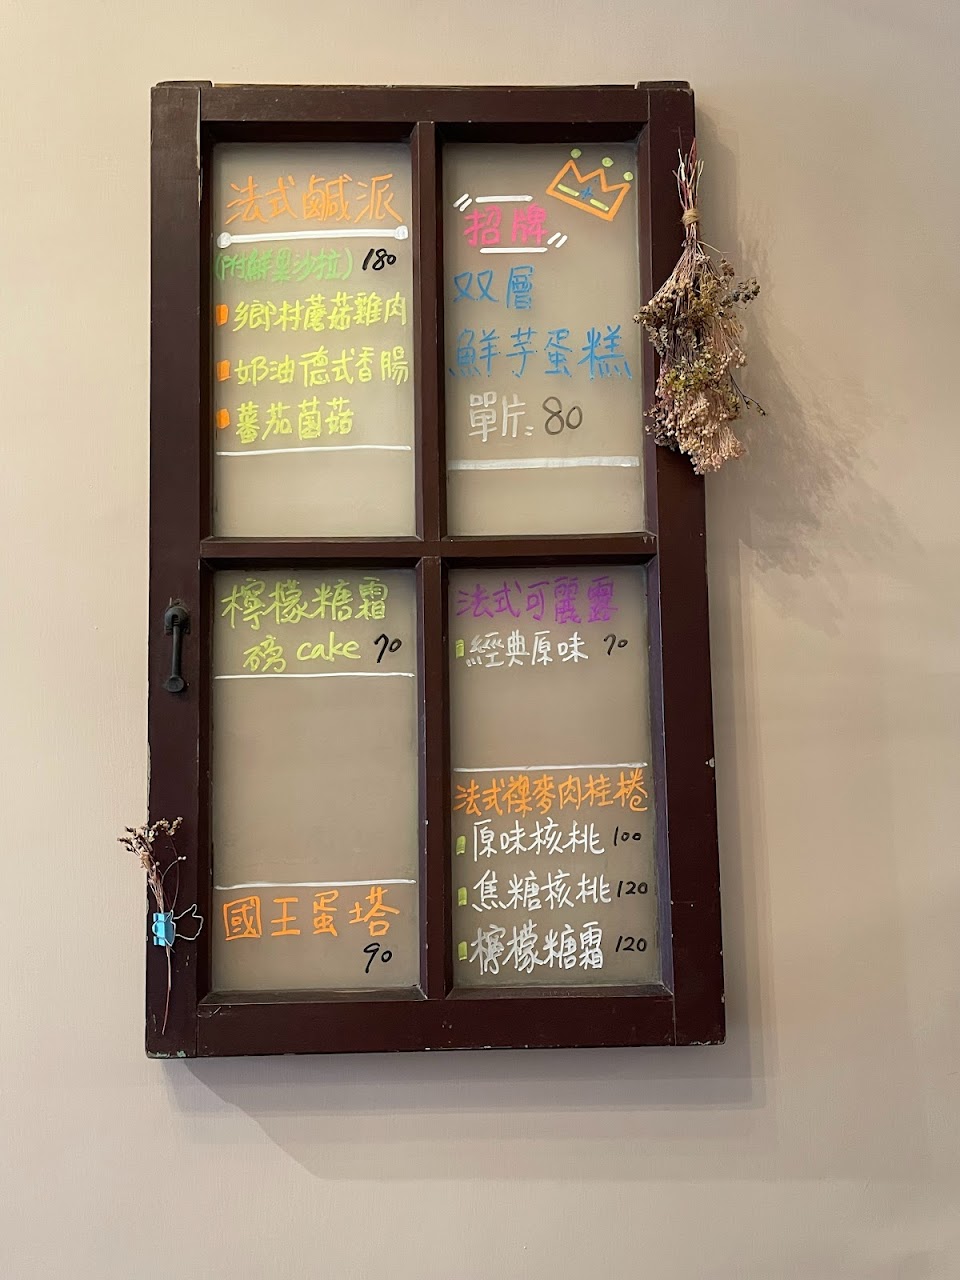 法式鹹派
(附鮮果沙拉) 180
鄉村蘑菇雞肉
奶油德式香腸
蕃茄菌菇
招牌
双層
鮮芋蛋糕
單片: 80
檸檬糖霜
磅 cake 70
國王蛋塔
90
法式可麗露
經典原味 70
法式裸麥肉桂捲
原味核桃 100
焦糖核桃 120
檸檬糖霜 120